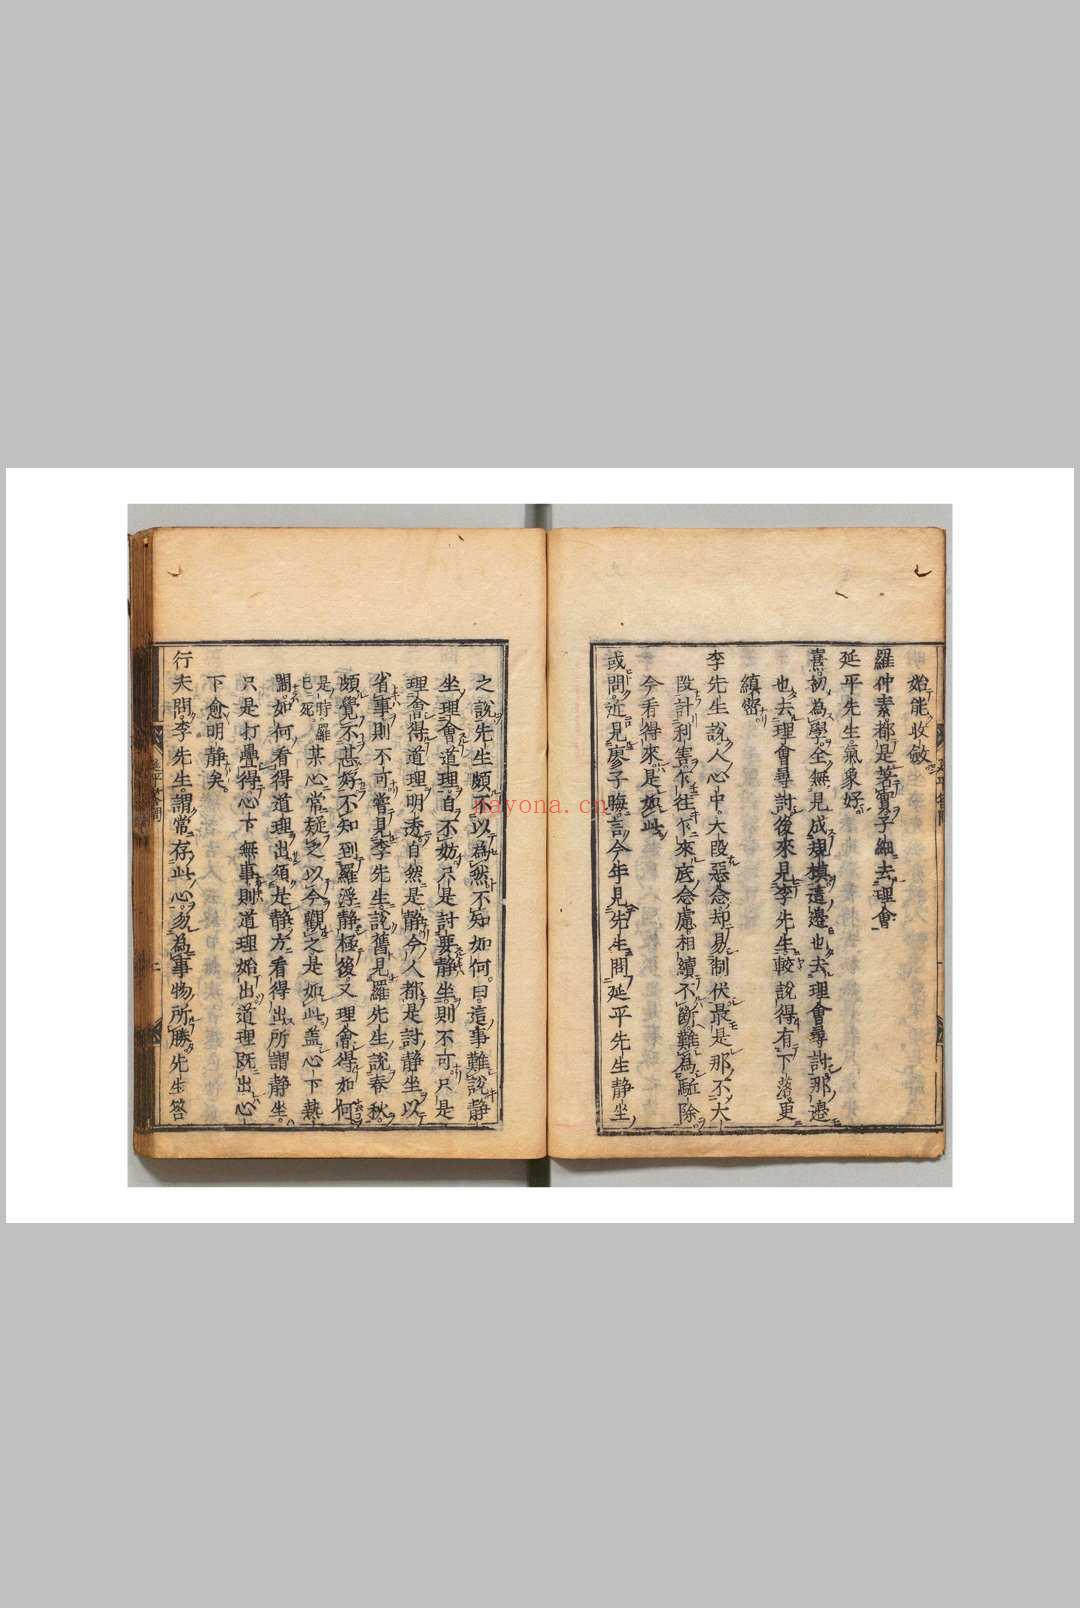 始能收斂
羅仲素都是著實子細去理會
延平先生氣象好
熹初為學全無見成規模這邊也去理會尋討那邊
也去理會尋討後來見李先生較說得有下落更
縝密
李先生說人心中大段惡念却易制伏最是那不大
段計利害乍往乍來底念慮相續不斷難為驅除
今看得來是如此
或問近見廖子晦言今年見先生問延平先生静坐
之說先生頗不以為然不知如何曰這事難說静
坐理會道理自不妨只是討要静坐則不可只是
理會得道理明透自然是静今人都是討静坐以
省事則不可嘗見李先生說舊見羅先生說春秋
頗覺不甚好不知到羅浮静極後又理會得如何
是時羅
已死
某心常疑之以今觀之是如此盖心下熱
鬧如何看得道理出須是静方看得出所謂静坐
只是打疊得心下無事則道理始出道理既出心
下愈明静矣
行夫問李先生謂常存此心勿為事物所勝先生答
延平答問
二
nayona.cn